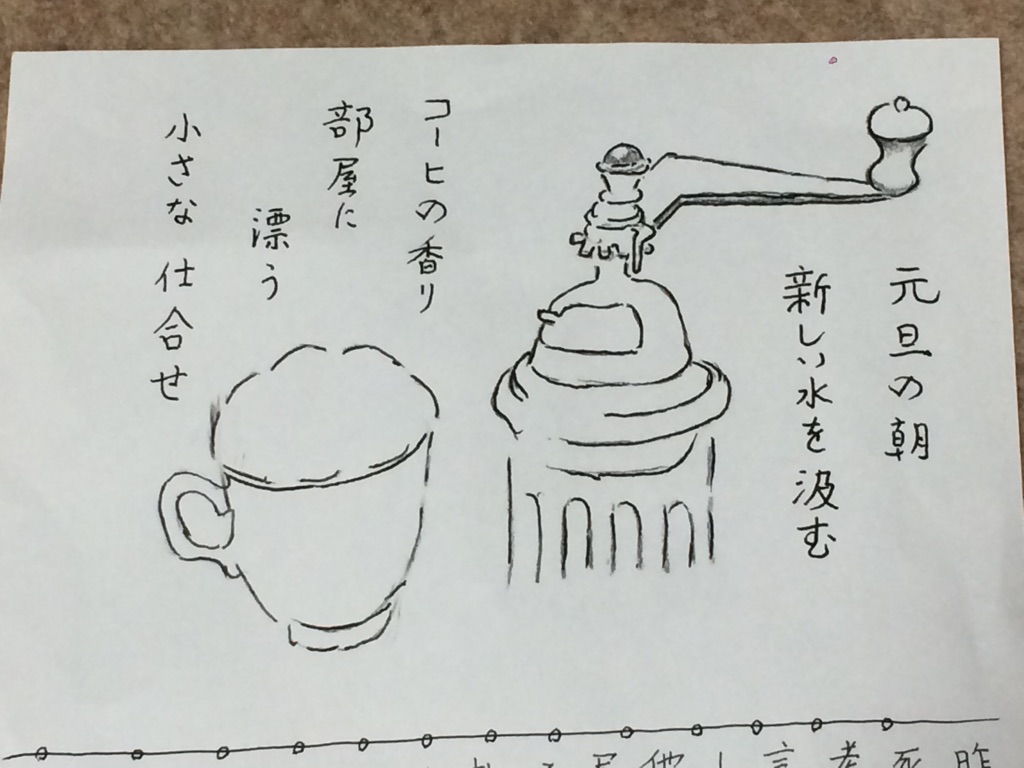 元旦の朝
新しい水を汲む
コーヒの香り
部屋に
漂う
小さな仕合せ